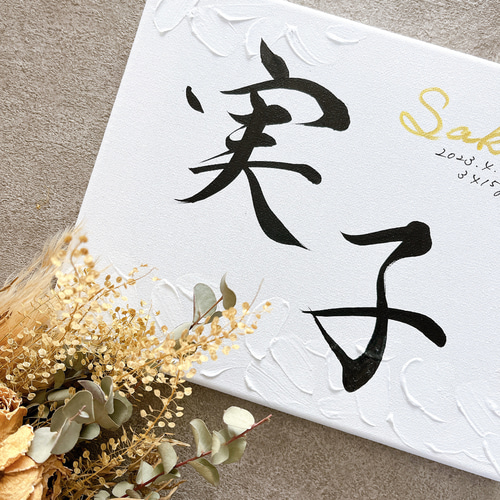 実子
Sak
2023.4.
3415